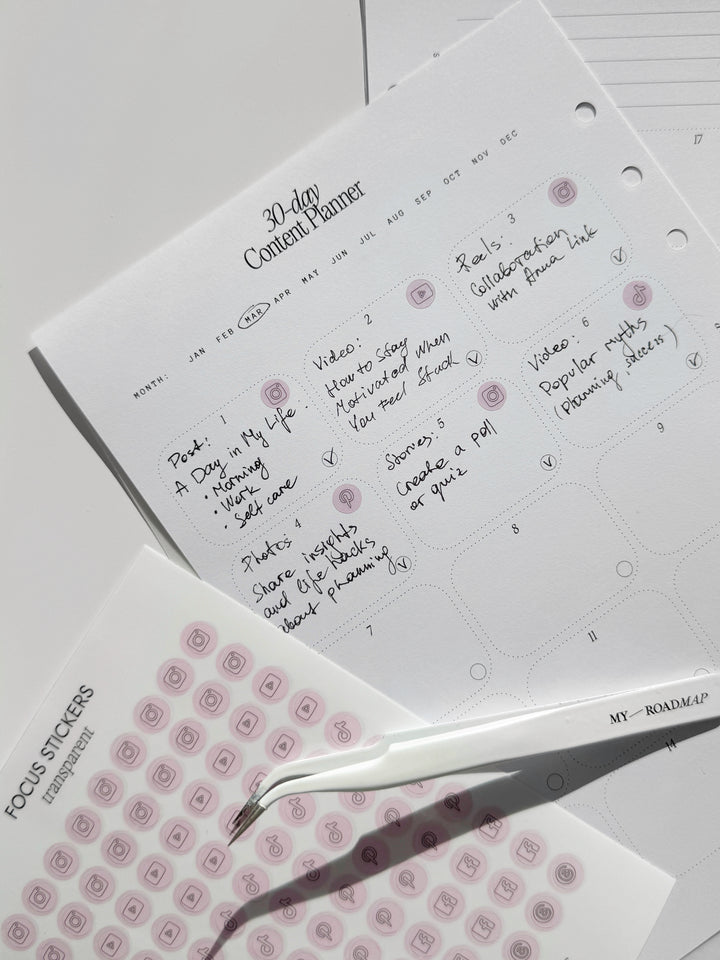 30-day
Content Planner
MONTH: JAN FEB MAR APR MAY JUN JUL AUG SEP OCT NOV DEC
1
Post:
A Day in My Life.
• Morning
• Work
• Self care
2
Video:
How to Stay
Motivated When
You Feel Stuck
3
Reels:
Collaboration
with Anna Link
4
Photos:
Share insights
and life hacks
about planning
5
Stories:
Create a poll
or quiz
6
Video:
Popular myths
(planning, success)
7
8
9
11
14
17
FOCUS STICKERS
transparent
MY—ROADMAP